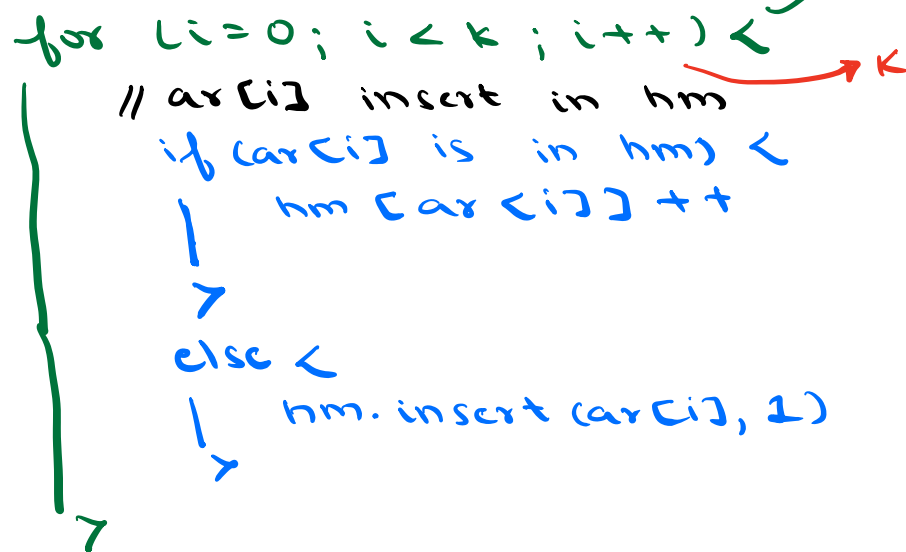 for (i=0; i<k; i++) {
K
// ar[i] insert in hm
if (ar[i] is in hm) {
hm [ar[i]] ++
}
else {
hm.insert(ar[i], 1)
}
}